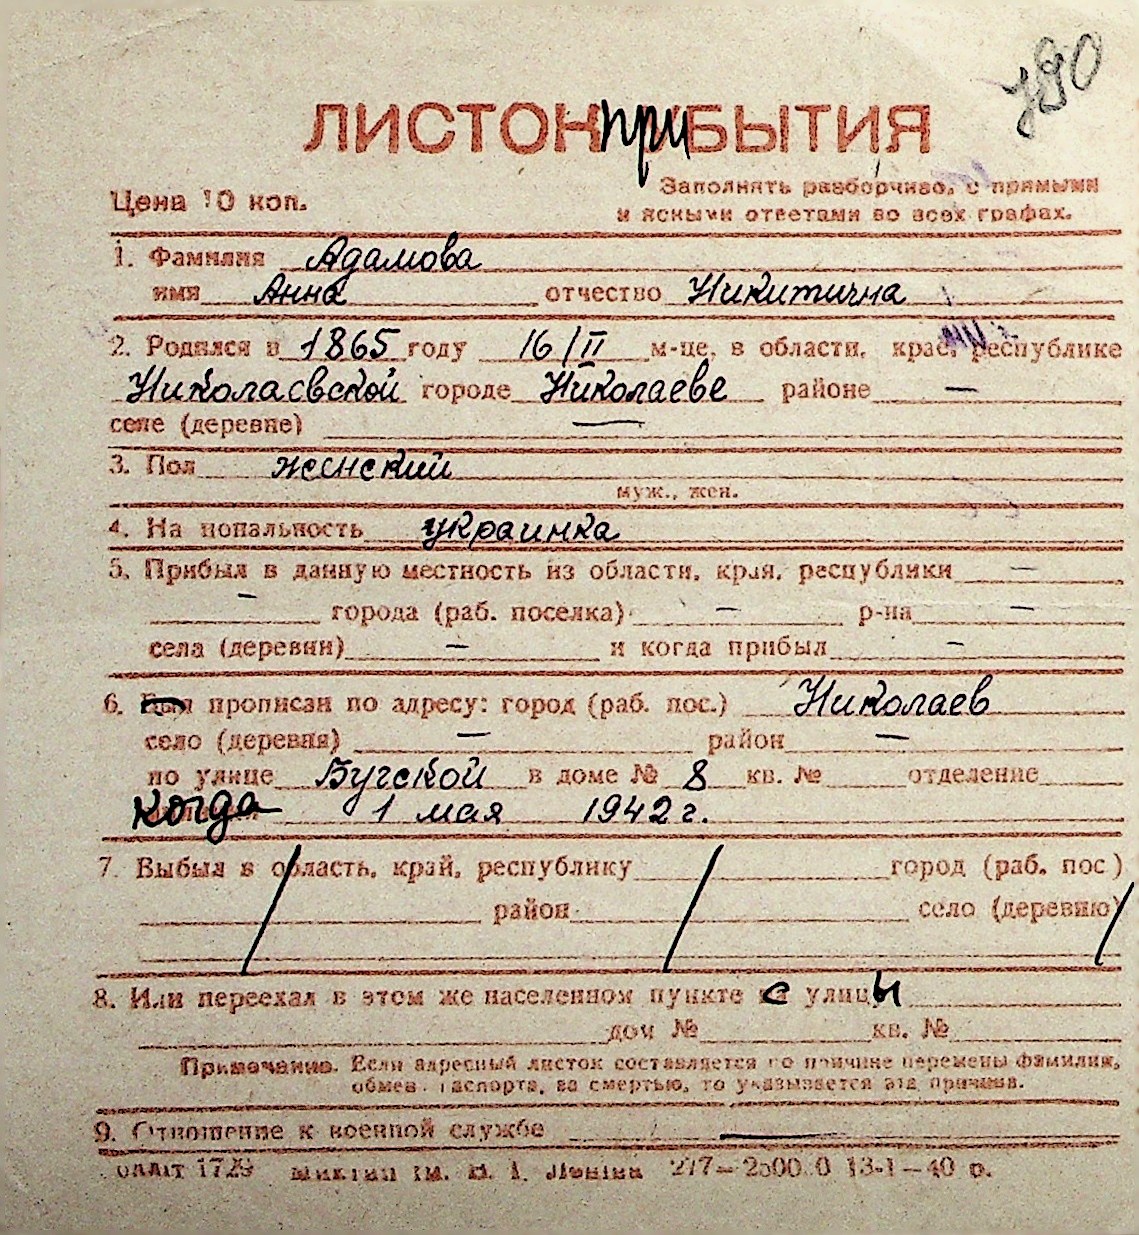 790
ЛИСТОК приБЫТИЯ
Цена 10 коп.
Заполнять разборчиво, с прямыми
и ясными ответами во всех графах.
1. Фамилия Адамова
имя Анна отчество Никитична
2. Родился в 1865 году 16/II м-це, в области, крае, республике
Николаевской городе Николаеве районе —
селе (деревне) —
3. Пол женский
муж., жен.
4. Национальность украинка
5. Прибыл в данную местность из области, края, республики —
— города (раб. поселка) — р-на —
села (деревни) — и когда прибыл —
6. Был прописан по адресу: город (раб. пос.) Николаев
село (деревня) — район —
по улице Бугской в доме № 8 кв. № отделение
Когда 1 мая 1942 г.
7. Выбыл в область, край, республику город (раб. пос)
район село (деревню)
8. Или переехал в этом же населенном пункте с улицы
дом № кв. №
Примечание. Если адресный листок составляется по причине перемены фамилии,
обмен паспорта, за смертью, то указывается эта причина.
9. Отношение к военной службе —
1729 им. В. І. Леніна 277—2500 0 13-1—40 р.